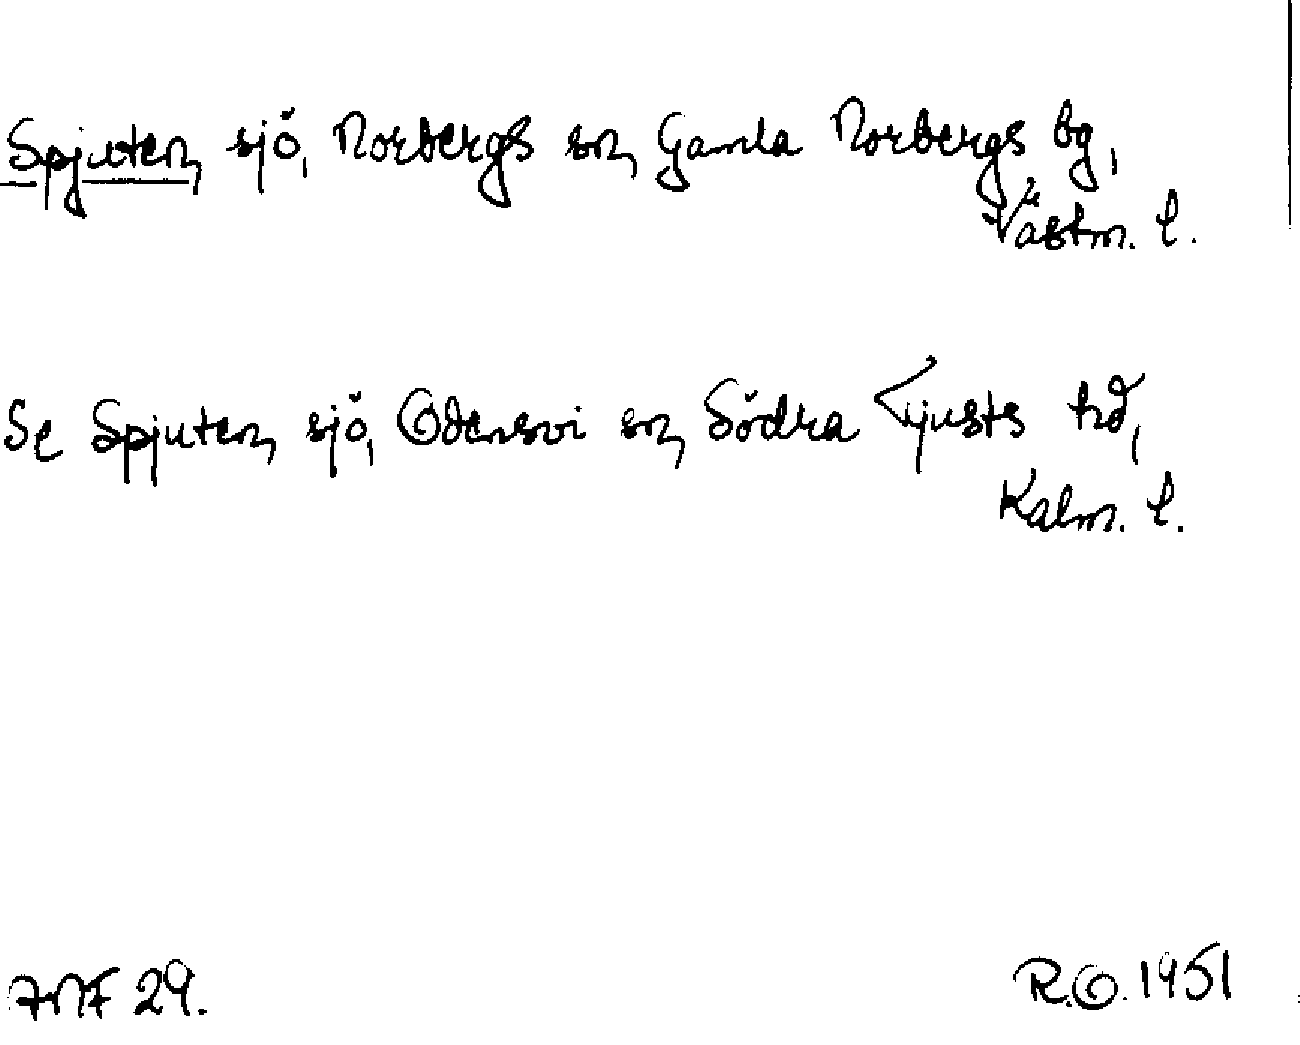 Spjuten, sjö, Norbergs sn, Gamla Norbergs bg,
Västm. l.
Se Spjuten, sjö, Odensvi sn, Södra Tjusts hd,
Kalm. l.
ANF 29.
R.O. 1951